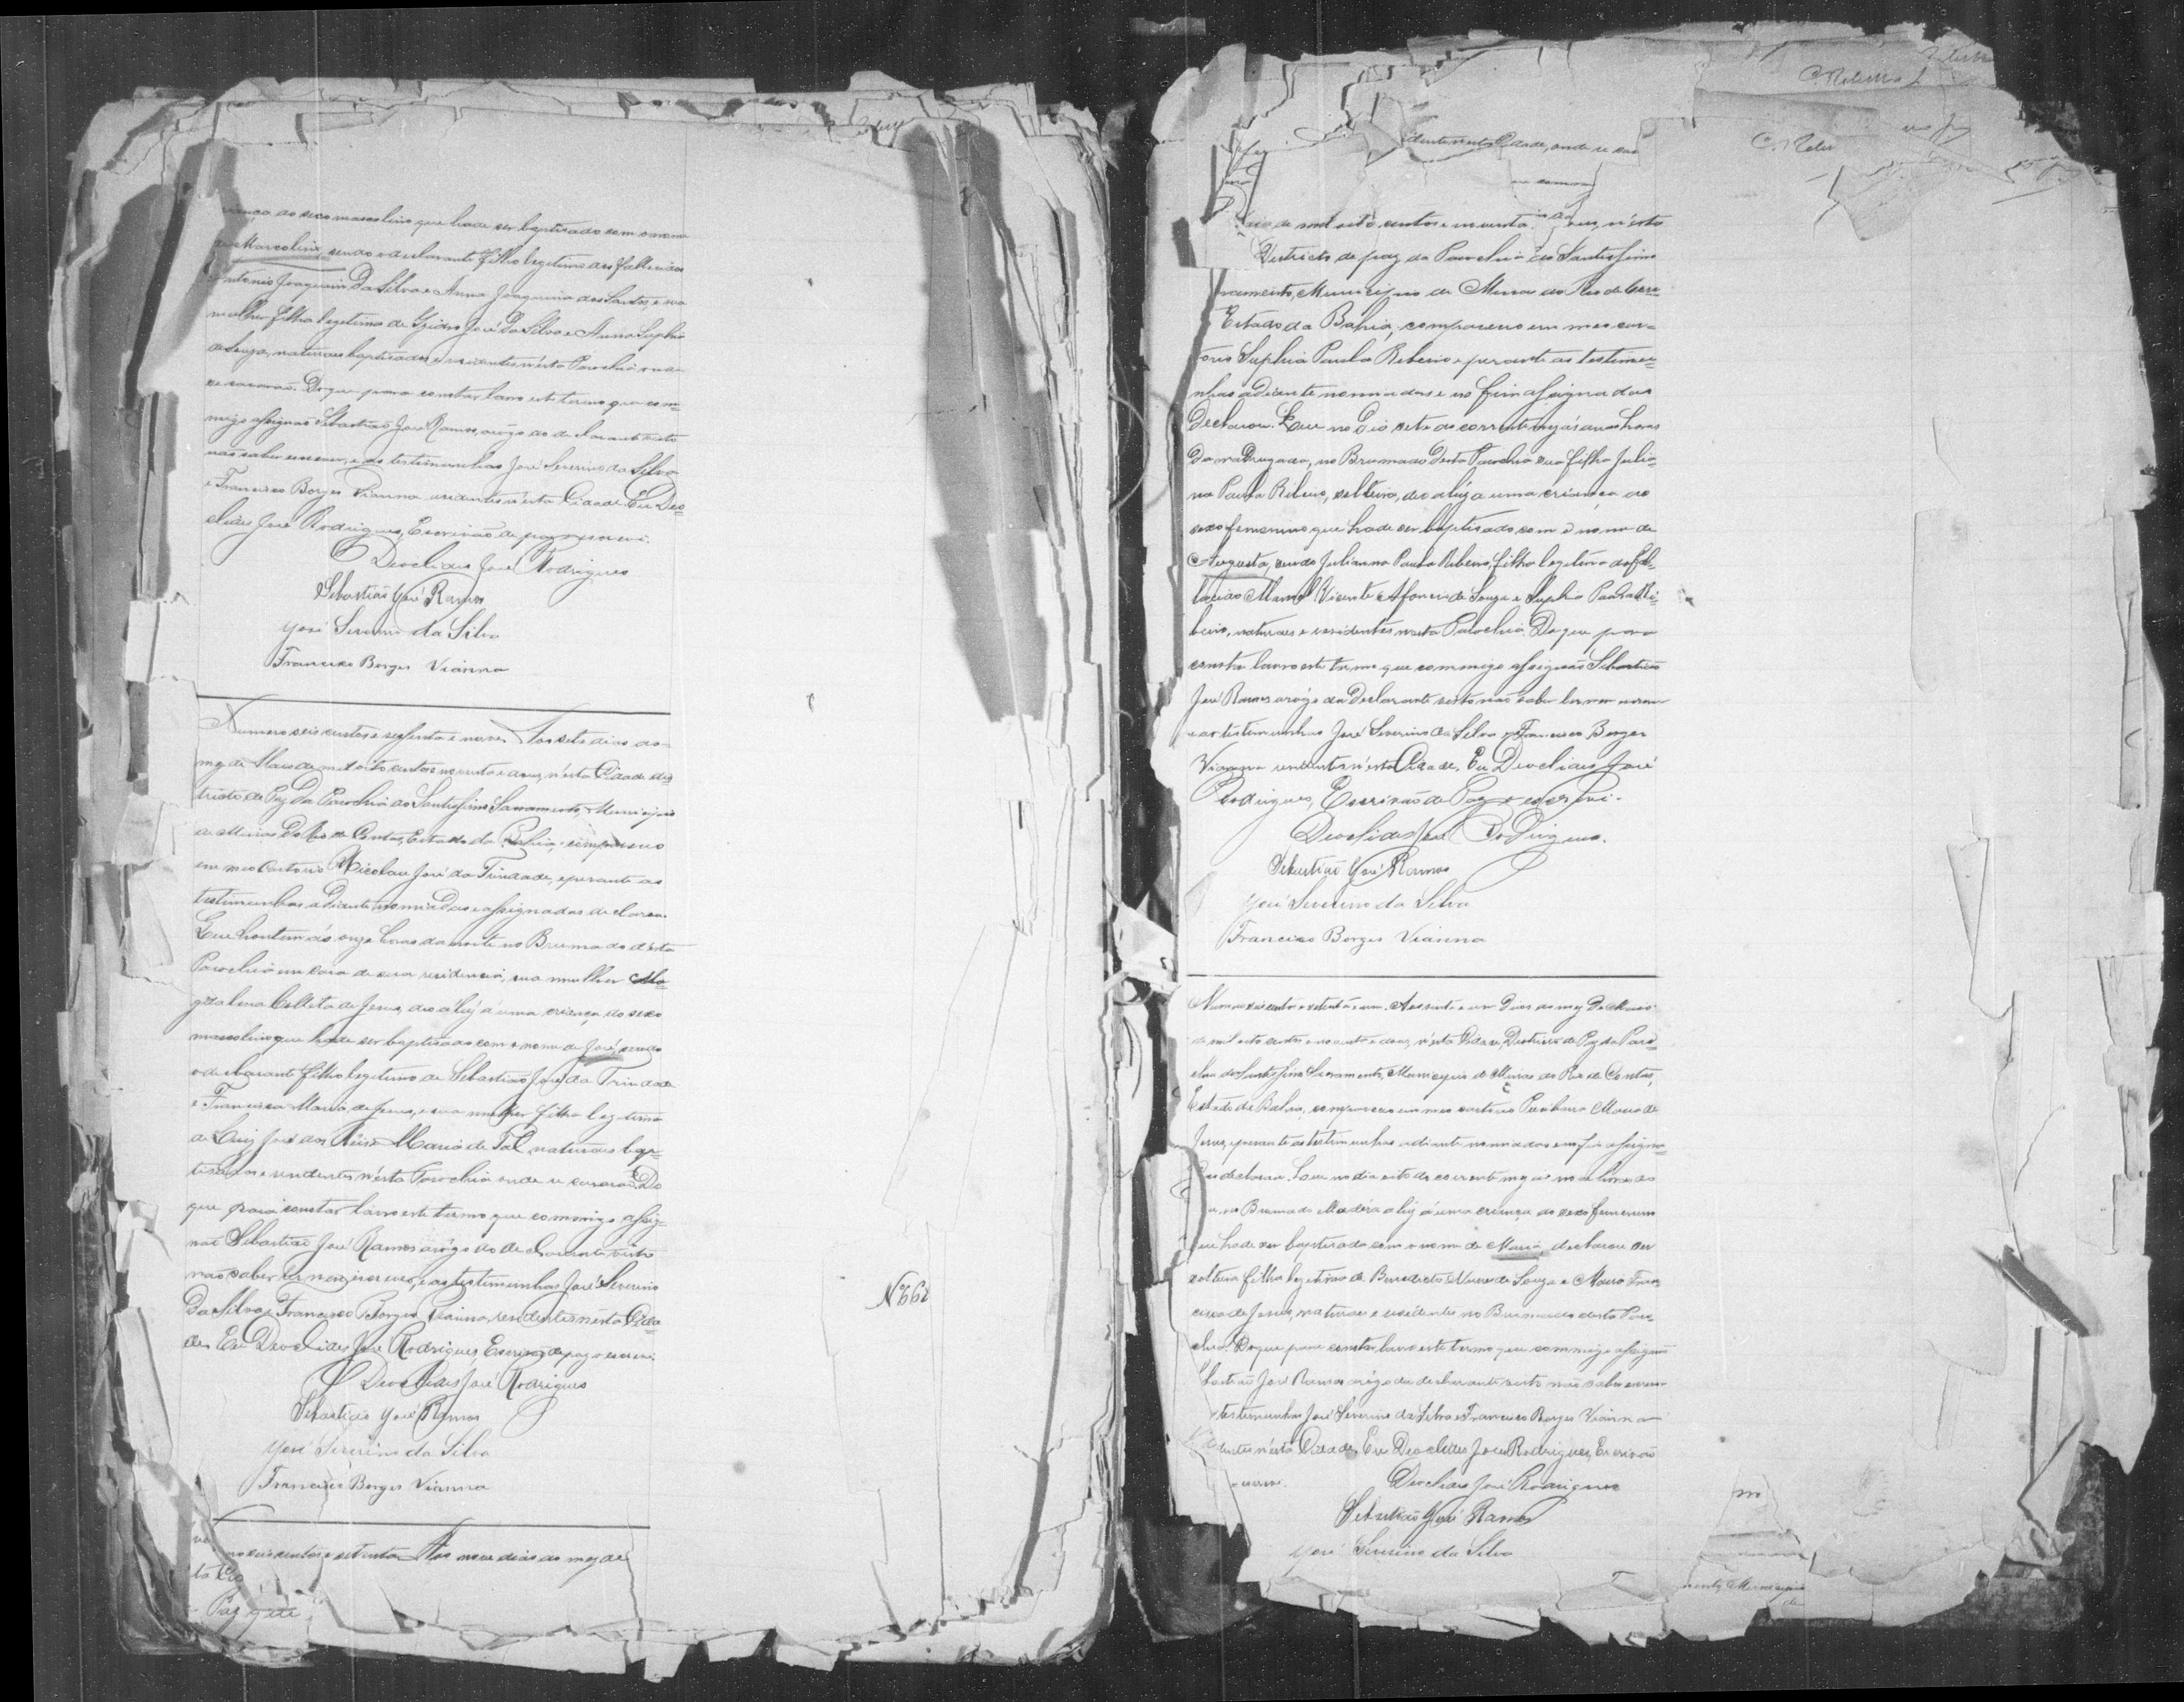 criança do sexo masculino que hade ser baptisado com o nome
de Marcolino, sendo o declarante filho legitimo dos fallecidos
Antonio Joaquim Da Silva e Anna Joaquina dos Santos, e sua
mulher filha legitima de Izidro José Da Silva e Anna Sophia
de Souza, naturaes baptisados e residentes n'esta Parochia onde
se casarão. Do que para constar lavro este termo que com=
migo assignão Sebastião José Ramos, arôgo do declarante visto
não saber escrever, e as testemunhas José Severino da Silva
e Francisco Borges Vianna residentes n'esta Cidade. Eu Deo=
clides José Rodrigues, Escrivão de paz o escrevi.
Deoclides José Rodrigues
Sebastião José Ramos
José Severino da Silva
Francisco Borges Vianna
Numero seis centos e sessenta e nove. Aos sete dias do
mez de Maio de mil oito centos noventa e dous, n'esta Cidade dis=
tricto de Paz Da Parochia do Santissimo Sacramento, Municipio
de Minas Do Rio de Contas, Estado da Bahia, compareceo
em meo Cartorio Nicolau José da Trindade, e perante as
testemunhas adiante nomiadas e assignadas declarou.
Que hontem ás onze horas da noite no Brumado d'esta
Parochia em casa de sua residencia, sua mulher Ma=
gdalena Colleta de Jesus, deo á luz á uma criança do sexo
masculino que hade ser baptisado com o nome de José, sendo
o declarante filho legitimo de Sebastião José da Trindade
e Francisca Maria de Jesus, e sua mulher filha legitima
de Luiz José dos Reis e Maria de Tal, naturaes bap=
tisados e residentes n'esta Parochia onde se casarão. Do
que para constar lavro este termo que commigo assig=
não Sebastião José Ramos arôgo do declarante visto
não saber ler nem escrever, e as testemunhas José Severino
Da Silva e Francisco Borges Vianna, residentes n'esta Cida=
de. Eu Deoclides José Rodrigues, Escrivão de paz o escrevi.
Deoclides José Rodrigues
Sebastião José Ramos
José Severino da Silva
Francisco Borges Vianna
seis centos e setenta. Aos nove dias do mez de
Paz
Nº 668
dente nesta Cidade, onde se
de mil oito centos e noventa e dous, n'esta
Districto de paz da Parochia do Santissimo
Sacramento, Municipio de Minas do Rio de Contas
Estado da Bahia, compareceo em meo car=
torio Suphia Paula Ribeiro e perante as testemu=
nhas adiante nomiadas e no fim assignadas
Declarou. Que no Dia sete do corrente mez ás duas horas
Da madrugada, no Brumado Desta Parochia sua filha Julia=
na Paula Ribeiro, solteira, deo a luz a uma criança do
sexo femenino que hade ser baptisado com o nome de
Augusta, sendo Julianna Paula Ribeiro, filha legitima do fal=
lecido Manoel Vicente Afonso de Souza e Suphia Paula Ri=
beiro, naturaes e residentes nesta Parochia. Do que para
constar lavro este termo que commigo assignão Sebastião
José Ramos arôgo da Declarante visto não saber ler nem escrever
e as testemunhas José Severino da Silva e Francisco Borges
Vianna residentes n'esta Cidade. Eu Deoclides José
Rodrigues, Escrivão de Paz o escrevi.
Deoclides José Rodrigues.
Sebastião José Ramos
José Severino da Silva
Francisco Borges Vianna
Numero seis centos e setenta e um. Aos vinte e um Dias do mez De Maio
de mil oito centos e noventa e dous, n'esta Cidade, Districto de Paz da Paro=
chia do Santissimo Sacramento, Municipio de Minas do Rio de Contas,
Estado da Bahia, compareceo em meo cartorio Maria de
Jesus, e perante as testemunhas adiante nomiadas e no fim assigna=
das declarou. Que no dia oito do corrente mez
no Brumado á luz á uma criança do sexo femenino
que hade ser baptisada com o nome de Maria, declarou ser
solteira filha legitima de Benedicto Nunes de Souza e Maria Fran=
cisca de Jesus, naturaes e residentes no Brumado desta Paro=
chia. Do que para constar lavro este termo que commigo assignão
Sebastião José Ramos arôgo da declarante visto não saber escrever
testemunhas José Severino da Silva e Francisco Borges Vianna
dentes n'esta Cidade. Eu Deoclides José Rodrigues, Escrivão
o escrevi.
Deoclides José Rodrigues
Sebastião José Ramos
José Severino da Silva
mento, Municipio
de